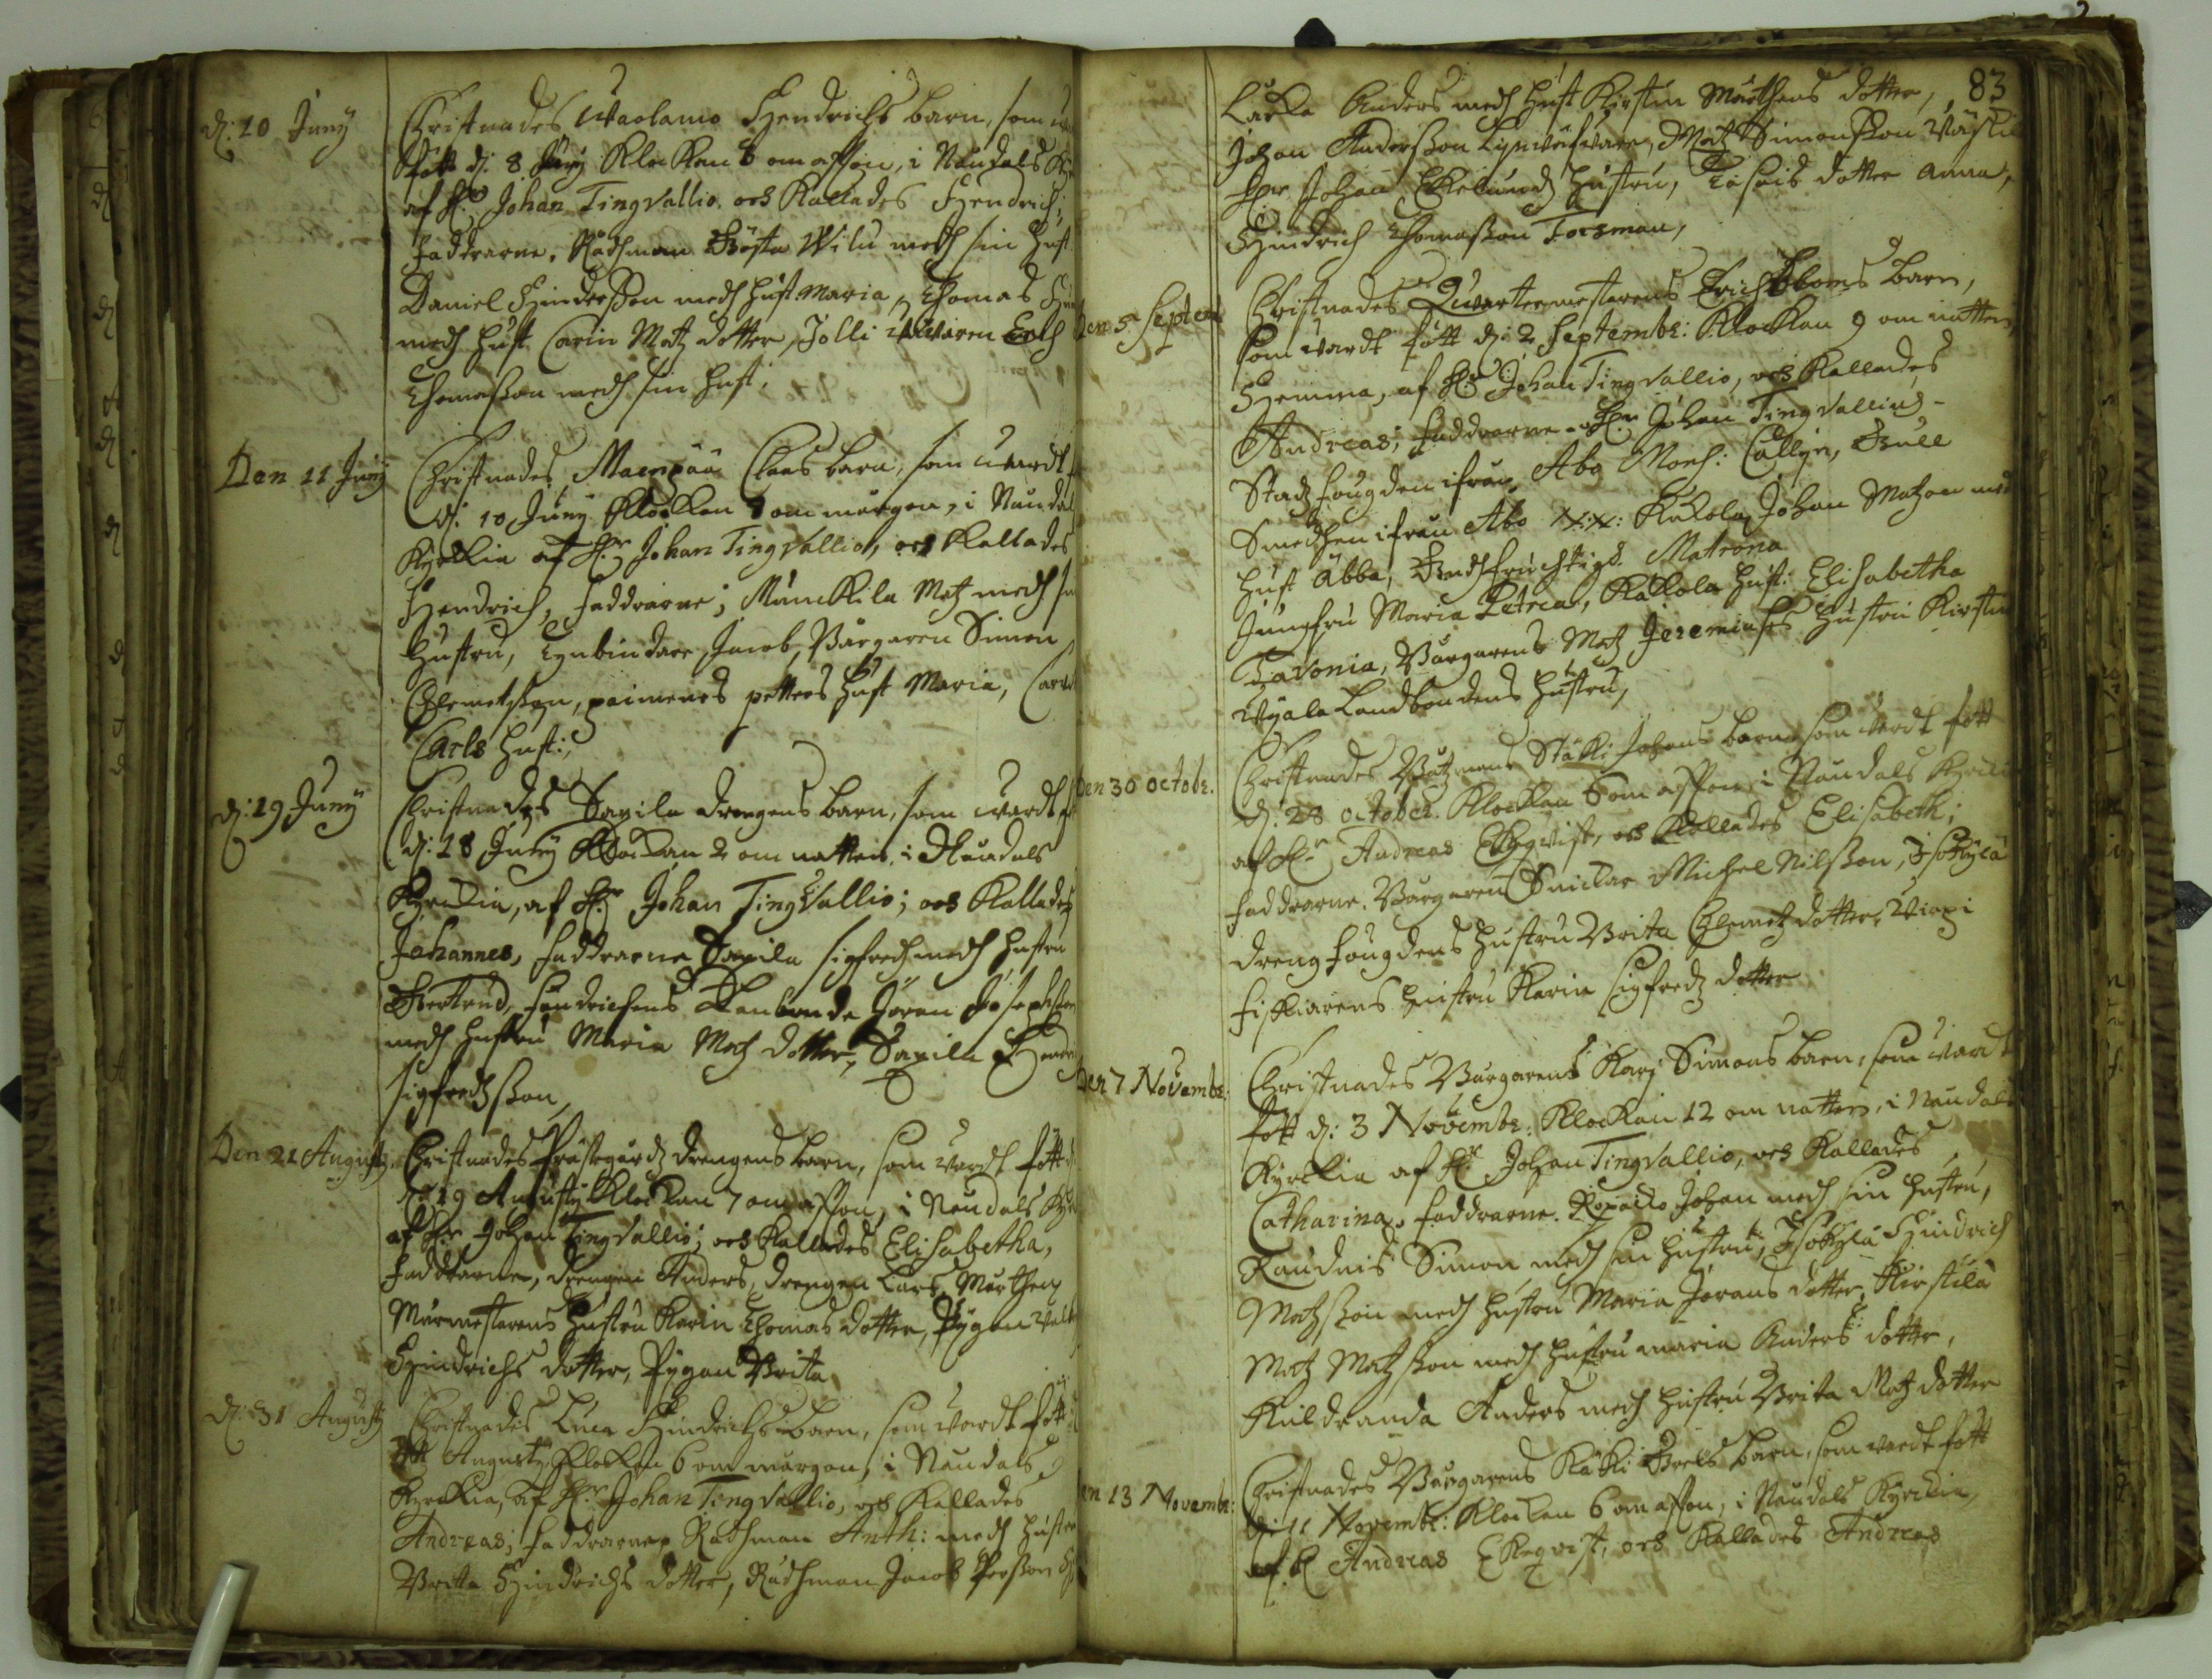 d: 10 Junÿ
Christnades Waolamo Hendrichs barn, som
fött d: 8 Junÿ Klockan 8 om affton, i Nåudals
af H:r Johan Tingvallio och Kallades Hendrich;
faddrarne, Rådhman Gösta Wilu medh sin Hust
Daniel Hinderßon medh hust Maria, Thomas
medh hust Carin Matz dotter, Jolli Erich
Thomaßon medh sin hust:
Den 11 Junÿ
Christnades Maenpää Claes barn, som wardt
d: 10 Junÿ Klockan 8 om mårgon, i Naudals
Kyrckia af H:r Johan Tingvallio, och Kallades
Hendrich, faddrarne; Munckila Matz medh
hustru, Jacob, Bårgaren Simon
Clemetßon, paimenes petters hust Maria,
Carls hust:
d: 19 Junÿ
Christnades Saxila drengens barn, som wardt
d: 18 Junÿ Klockan 2 om natten, i Naudals
Kyrckia, af H:r Johan Tingvallio; och Kallades
Johannes, faddrarne Saxila Sigfredh medh hustru
Gertrud, Lanbonde Jören Josephson
medh hustru Maria Matz dotter, Saxila
Sigfredzßon,
Den 21 Augustÿ
Christnades Prästegårdz drengens barn, som wardt fött
d: 19 Augustÿ Klockan 7 om affton, i Naudals
af H:r Johan Tingvallio; och Kallades Elisabetha,
Faddrarne, drengen Anders, drengen Lars, Mårthen
Murmestarens hustru Karin Thomas dotter, Pygan
Hindrichs dotter, Pygan Brita
d: 31 Augustÿ
Christnades Hindrichs barn, som wardt fött
Augustÿ Klockan 6 om mårgon, i Naudals
Kyrckia, af H:r Johan Tingvallio, och Kallades
Andreas; faddrarne, Rådhman Anth: medh hustru
Brita Hindrichs dotter, Rådhman Jacob Perßon
83
Anders medh hust Kirstin Mårthens dotter,
Johan Anderßon Matz Simonßon
Her Johan Ekelundz hustru, dotter Anna,
Hindrich Thomaßon Forsman,
Den 5 Septem
Christnades Quartermesterens Erich Bloms barn,
som wardt fött d: 2 Septembr: Klockan 9 om natten
Hemma, af H:r Johan Tingvallio, och Kallades
Andreas; faddrarne, H:r Johan Tingvallius
Stadz fougden ifrån Åbo Mons: Callÿn, Gull
Smedhen ifrån Åbo N:N: Kålola Johan Matzon medh
hust Åbba, Gudhfruchtige Matrona
Jungfru Maria Petreas, Kallola hust: Elisabetha
Favonia, Bårgarens Matz Jeremiæ hustru Kirstin
Landbondens hustru,
Den 30 Octobr.
Christnades Ståki Johans barn som wardt fött
d: 28 October. Klockan 6 om affton i Naudals Kyrckia
af H:r Andreas Ekeqvist, och Kallades Elisabeth;
faddrarne. Bårgaren Michel Nilßon, Isokylä
dreng fougdens hustru Brita Clemetz dotter, Wirpi
fiskiarens hustru Karin Sigfredz dotter
Den 7 Novembr:
Christnades Bårgarens Karj Simons barn, som wardt
fött d: 3 Novembr: Klockan 12 om natten, i Naudals
Kyrckia af H:r Johan Tingvallio, och Kallades
Catharina, faddrarne. Johan medh sin hustru,
Simon medh sin hustru, Isokylä Hindrich
Matzßon medh hustru Maria Jörans dotter, Kirstilä
Matz Matzßon medh hustru Maria Anders dotter,
Huldranda Anders medh hustru Brita Matz dotter
Den 13 Novembr:
Christnades Bårgarens Käki Grels barn, som wardt fött
d: 11 Novembr: Klockan 6 om affton, i Naudals Kyrckia,
af H Andreas Ekeqvist, och Kallades Andreas